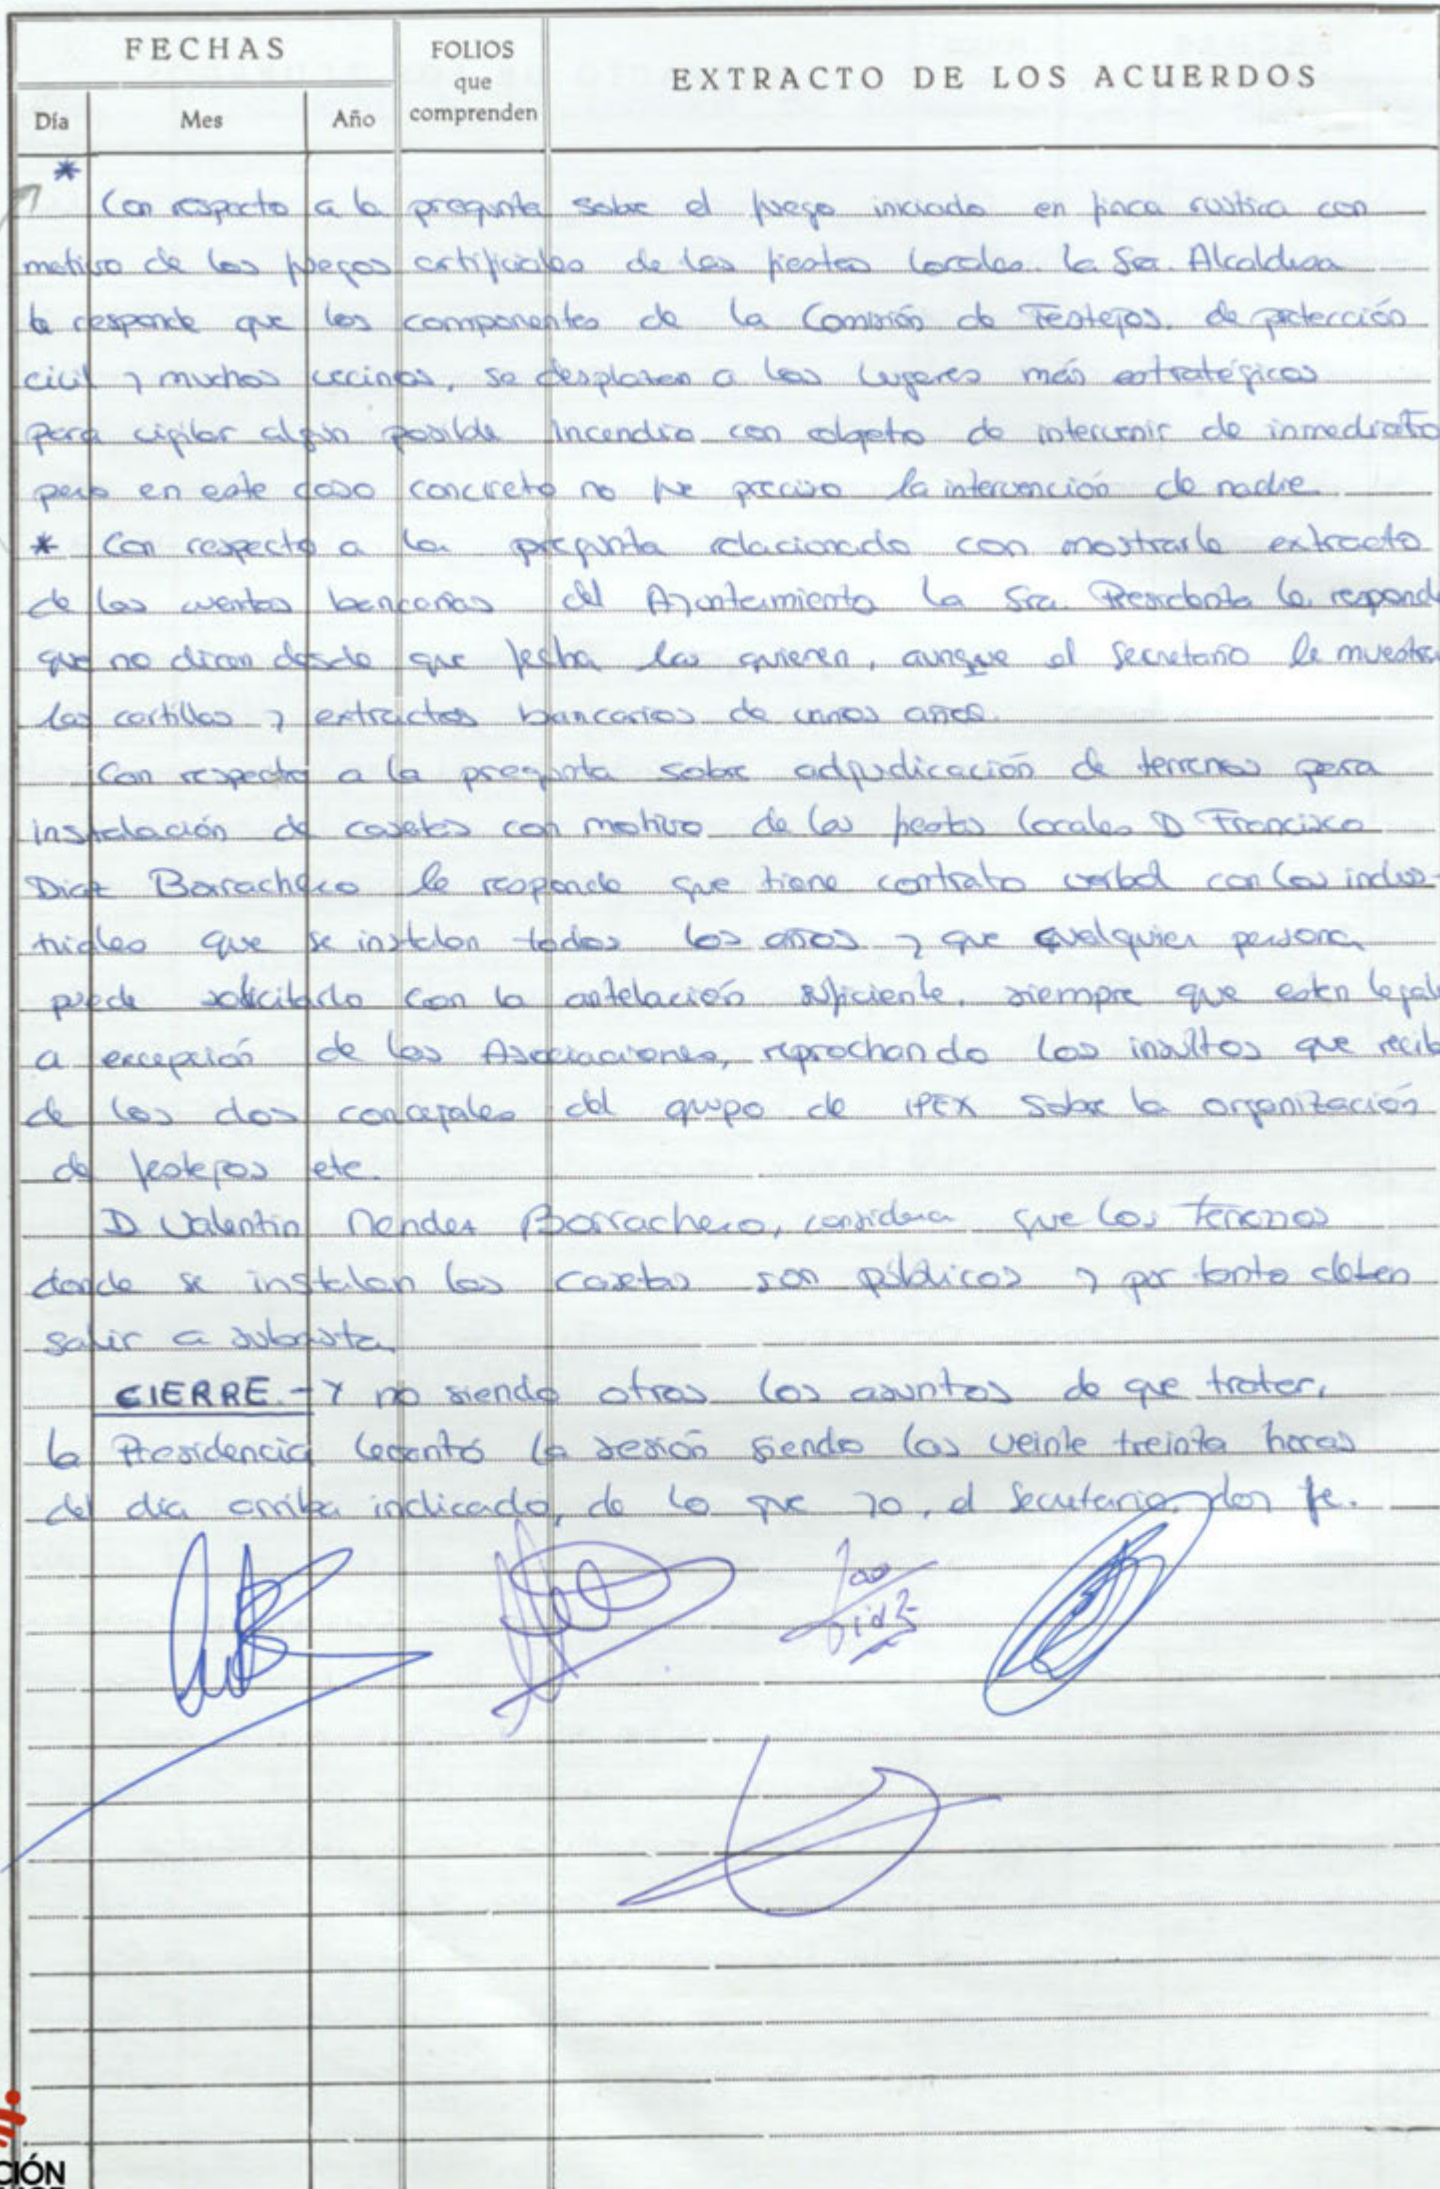 FECHAS
FOLIOS
que
comprenden
EXTRACTO DE LOS ACUERDOS
Día Mes Año
*
Con respecto a la pregunta sobre el fuego iniciado en finca rustica con
motivo de los fuegos artificiales de las fiestas locales. la Sra. Alcaldesa
le responde que los componentes de la Comisión de Festejos. de protección
civil y muchos vecinos, se desplazan a los lugares más estratégicos
para vigilar algún posible incendio con objeto de intervenir de inmediato
pero en este caso concreto no fue preciso la intervención de nadie.
* Con respecto a la pregunta relacionada con mostrarle extracto
de las cuentas bancarias del Ayuntamiento la Sra. Presidenta le responde
que no dicen desde que fecha las quieren, aunque el Secretario le muestra
las cartillas y extractos bancarios de varios años.
Con respecto a la pregunta sobre adjudicación de terrenos para
instalación de casetas con motivo de las fiestas locales D Francisco
Diaz Barrachero le responde que tiene contrato verbal con los indus-
triales que se instalan todos los años y que cualquier persona
puede solicitarlo con la antelación suficiente, siempre que esten legal
a excepción de las Asociaciones, reprochando los insultos que recib
de los dos concejales del grupo de IPEX sobre la organización
de festejos etc.
D Valentin Mendez Barrachero, considera que los terrenos
donde se instalan las casetas son públicos y por tanto deben
salir a subasta.
CIERRE.- Y no siendo otros los asuntos de que tratar,
la Presidencia levantó la sesión siendo las veinte treinta horas
del día arriba indicado, de lo que yo, el Secretario doy fe.
CIÓN